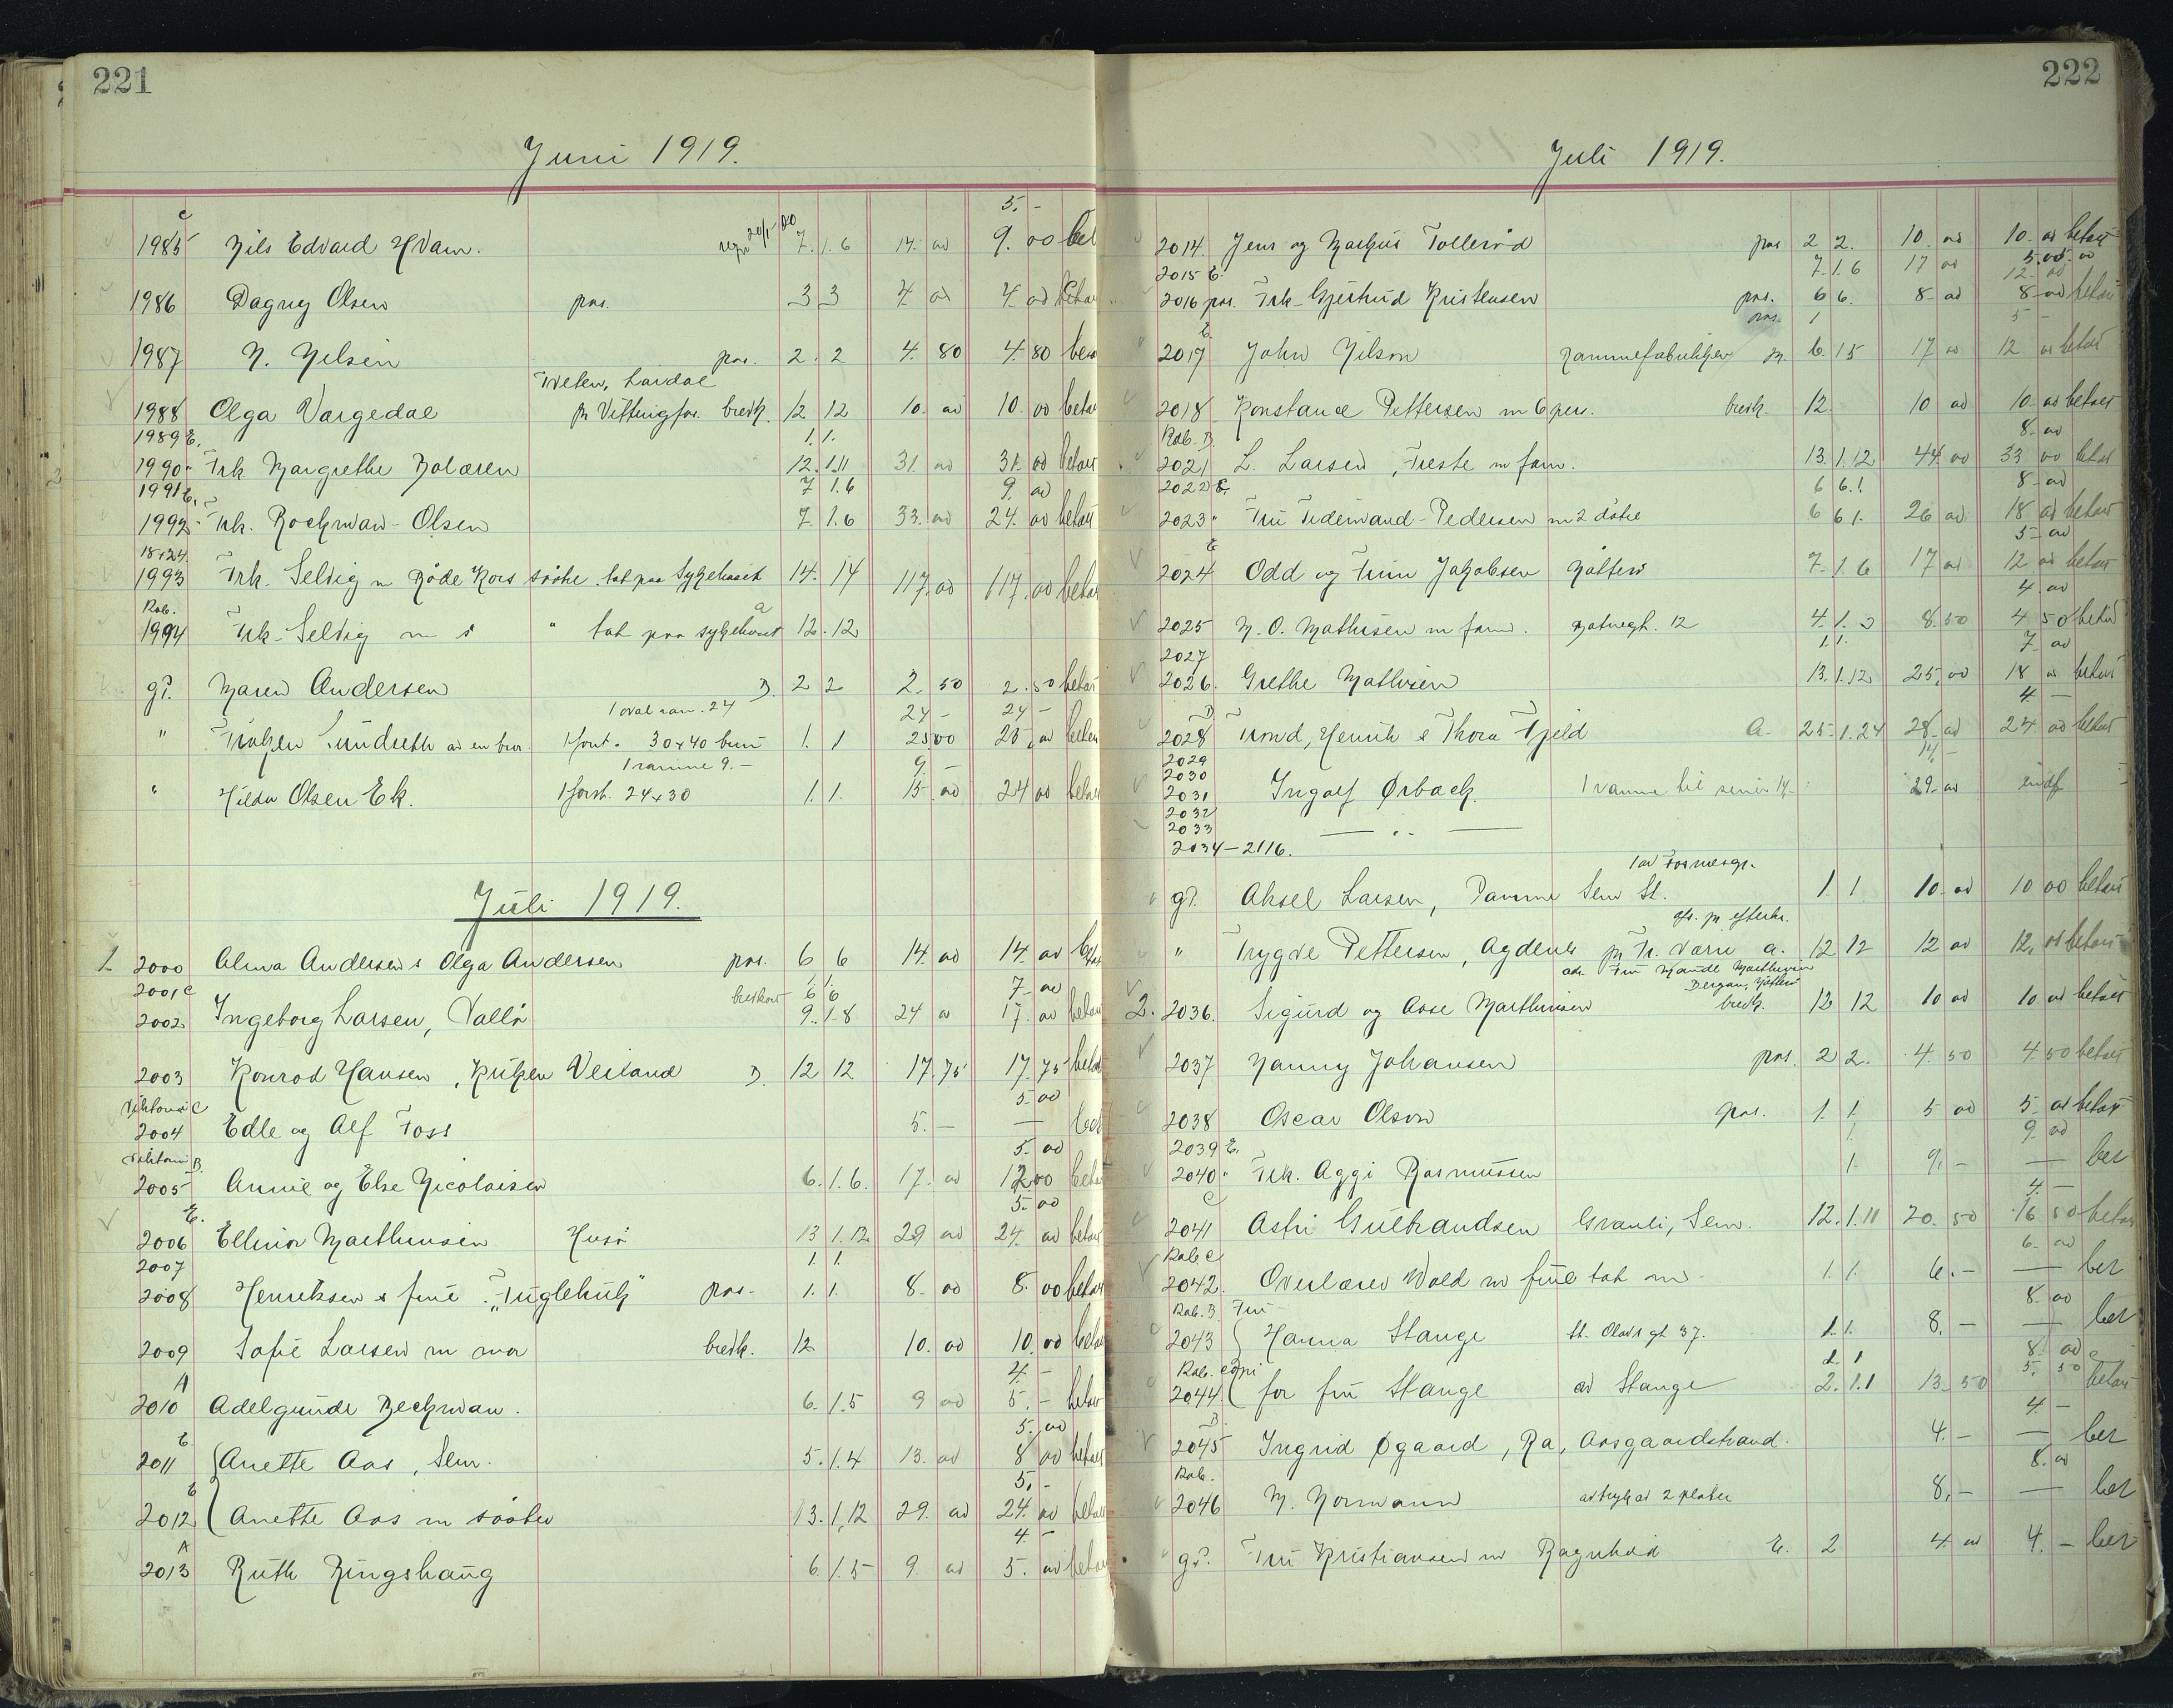 221
Juni 1919.
5. -
c
1985 Nils Edvard Hvam. 20/1-20 7. 1. 6 14. 00 9. 00 bet
1986 Dagny Olsen pos. 3 3 4 00 4. 00 betalt
1987 N. Nilsen pos. 2. 2 4. 80 4. 80
1988 Olga Vargedal bredk. 12 12 10. 00 10. 00 betalt
1989 E. 1. 1.
1990 " Frk. Margrethe Bolæren 12. 1. 11 31. 00 31. 00 betalt
1991 E. 7 1. 6 9. 00
1992 - Frk. Rockman-Olsen 7. 1. 6 33. 00 24. 00 betalt
18x24
1993 Frk. Selvig m Røde Kors tat paa Sykehuset 14. 14 117. 00 117. 00 betalt
Rab. a
1994 Frk. Selvig m s " tat paa sykehuset 12. 12
gP. Maren Andersen B. 2 2 2. 50 2. 50 betalt
1 oval ram. 24 24 - 24 -
" Frøken Sundseth 1 forst. 30x40 brun 1. 1 25 00 25. 00 betalt
1 ramme 9. - 9. -
" Hilda Olsen Ek. 1 forst. 24x30 1. 1. 15. 00 24 00 betalt
Juli 1919.
1. 2000 Alma Andersen & Olga Andersen pos. 6 6 14. 00 14. 00
2001 c bredkort 6 6 7. 00
2002 Ingeborg Larsen, Vallø 9. 1. 8 24 00 17. 00 betalt
2003 Konrad Hansen, B. 12 12 17. 75 17. 75 betalt
Viktoria C 5. 00
2004 Edle og Alf Foss 5. - — ber
Viktoria B. 5. 00
2005 Annie og Else Nicolaisen 6. 1. 6. 17. 00 12. 00 betalt
E. 5. 00
2006 Ellinor Marthinsen Husø 13 1. 12 29 00 24. 00 betalt
2007 1. 1.
2008 Henriksen & frue "Fuglehuk" pos. 1. 1. 8. 00 8. 00 betalt
2009 Sofie Larsen m mor bredk. 12 10. 00 10. 00 betalt
A 4. -
2010 Adelgunde Beckman. 6. 1. 5 9 00 5. - betalt
E 5. 00
2011 Anette Aas, Sem. 5. 1. 4 13. 00 8 00 betalt
E 5. -
2012 Anette Aas m søster 13. 1. 12 29. 00 24. 00 betalt
A 4. -
2013 Ruth Ringshaug 6 1. 5 9. 00 5. 00 betalt
222
Juli 1919.
2014. Jens og Markus Tollerød pos 2 2. 10. 00 10. 00 betalt
2015 E. 7. 1. 6 17 00 12. 00
2016 pos. Frk. Gjertrud Kristensen pos. 6 6. 8. 00 8. 00 betalt
E. pos. 1 5 -
2017 John Nilson 6. 1 5 17 00 12 00 betalt
2018 Konstance Pettersen m 6 pers. bredk. 12. 10 00 10. 00 betalt
Rab. B. 8. 00
2021 L. Larsen, Treste m fam. 13. 1. 12 44 00 33 00 betalt
2022 E. 6 6. 1. 8. 00
2023 " Fru Tidemand-Pedersen m 2 døtre 6 6 1. 26 00 18 00 betalt
E 5. 00
2024 Odd og Finn Jakobsen Nøtterø 7. 1. 6 17 00 12 00 betalt
4. 00
2025 N. O. Mathisen m fam. 12 4. 1. 3 8. 50 4 50 betalt
2027 1. 1. 7. 00
2026. Grethe Mathisen 13. 1. 12 25. 00 18 00 betalt
B 4. -
2028 Trond, Henrik & Thora Fjeld A. 25. 1. 24 28. 00 24. 00 betalt
2029 14. -
2030
2031 Ingolf Ørbæck. 1 ramme til 14. - 29. 00
2032
2033 — " —
2034 - 2116.
gP. Aksel Larsen, Sem St. 1. 1 10. 00 10 00 betalt
" Trygve Pettersen, Agdenes a. 12 12 12 00 12, 00 betalt
adr. Fru Maude Marthinsen
2. 2036. Sigurd og Aase Marthinsen bredk. 12 12 10 00 10 00 betalt
2037 Nanny Johansen pos. 2 2. 4. 50 4. 50 betalt
2038 Oscar Olson pos. 1. 1. 5 00 5. 00 betalt
2039 E. 1. 9. 00
2040 " Frk. Aggi Rasmussen 1. 9. - — ber
C 4. -
2041 Astri Gulbrandsen Granli, Sem. 12. 1. 11 20. 50 16 50 betalt
Rab. c 6. 00
2042. Overlærer Wold m frue tat m 1. 1. 6. - — ber
Rab. B Fru 8. 00
2043 Hanna Stange St. Olavs gt 37. 1. 1. 8. - — ber
Rab. 1. 1 8. 00
2044 for fru Stange ad Stange 2. 1. 1 13. 50 5. 50 betalt
B. 4. -
2045 Ingrid Øgaard, Ra, Aasgaardstrand. 4. - — ber
Rab. 8. 00
2046 M. Normann avtryk av 2 plater 8. - — ber
gP. Fru Kristiansen m Ragnhild E. 2 4. 00 4. - ber